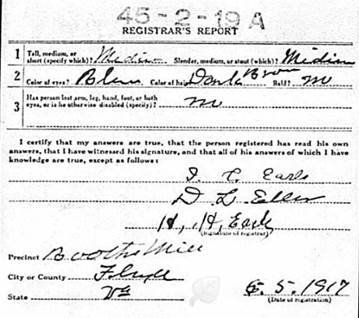 45-2-19 A
REGISTRAR'S REPORT
1 Tall, medium, or short (specify which)? Medium Slender, medium, or stout (which)? Medium
2 Color of eyes? Blue Color of hair? Dark Brown Bald? no
3 Has person lost arm, leg, hand, foot, or both eyes, or is he otherwise disabled (specify)? no
I certify that my answers are true, that the person registered has read his own
answers, that I have witnessed his signature, and that all of his answers of which I
have knowledge are true, except as follows:
D L
H, H, Earls
(Signature of registrar)
Precinct Booths Mill
City or County Floyd
State Va
6. 5. 1917
(Date of registration)